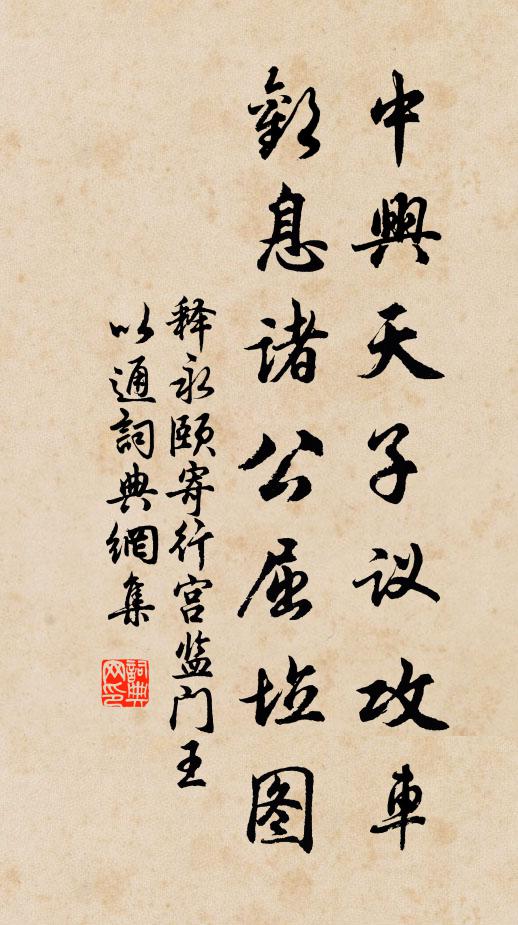 中興天子议攻車
息诸公屈图
释永颐寄行宫监门王
以通詞典網集
詞典网印